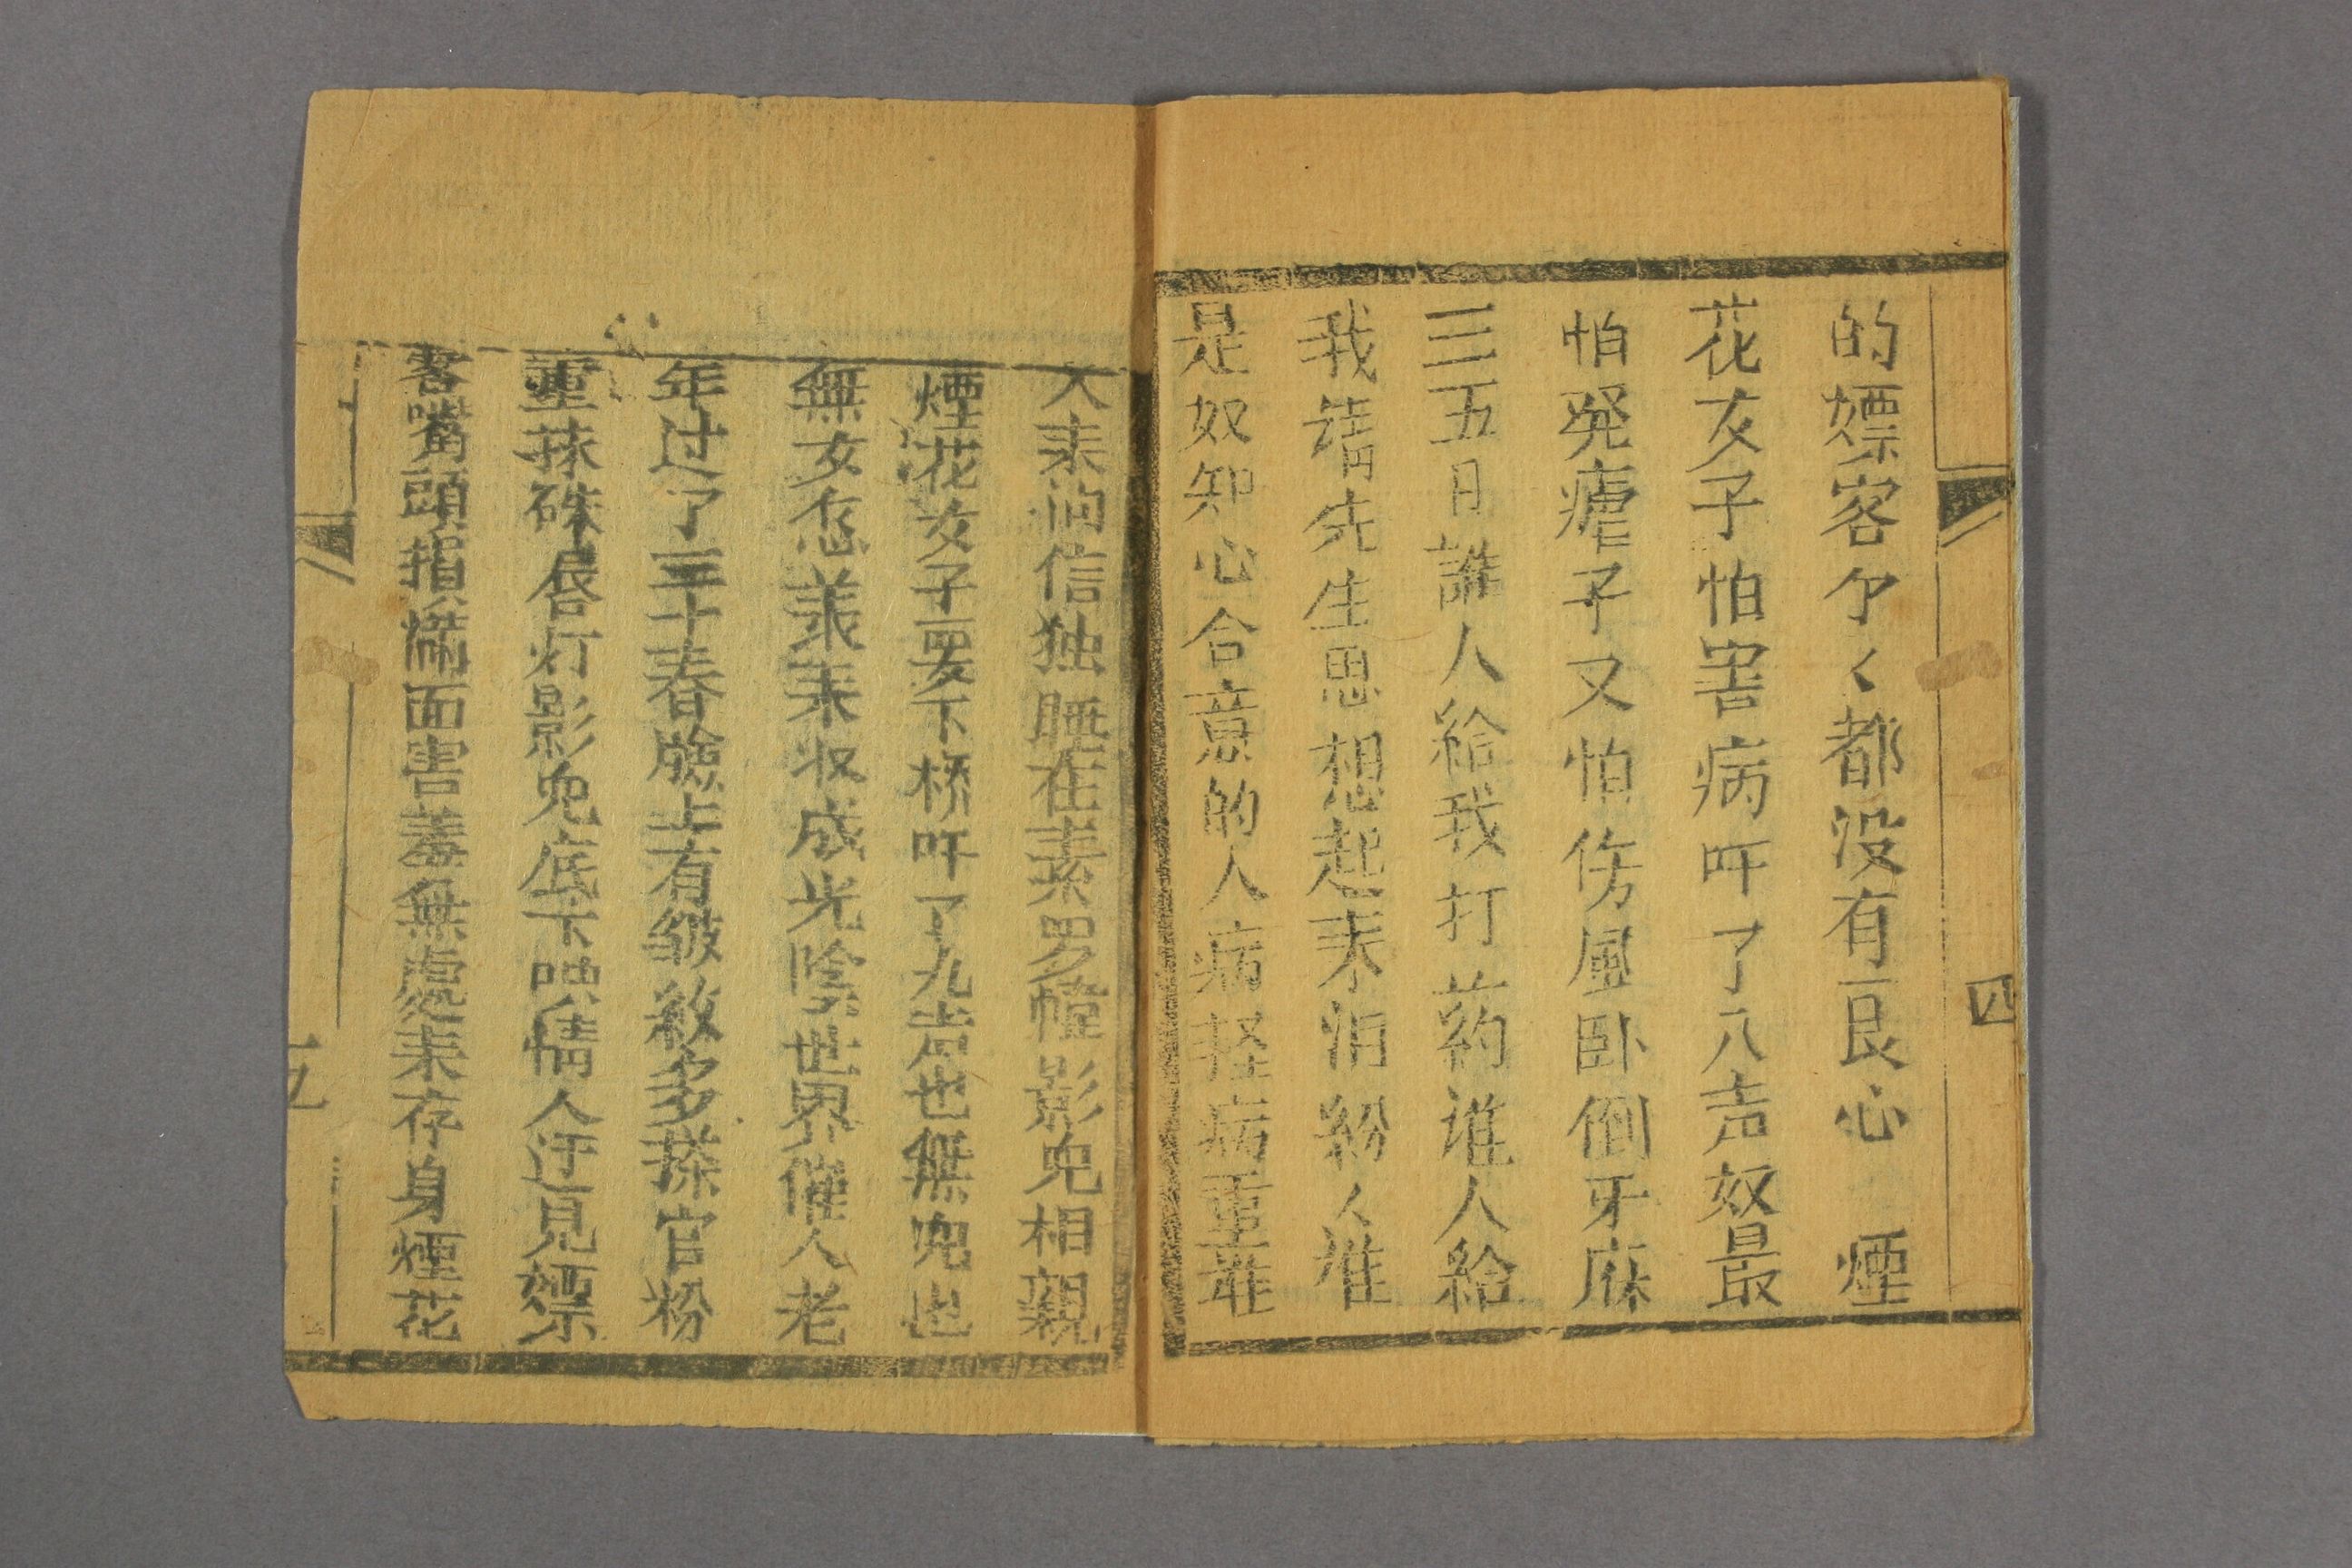 的嫖客个々都没有良心　煙
花女子怕害病吁了八声奴最
怕発瘧子又怕伤風卧倒牙床
三五日誰人給我打药谁人給
我請先生思想起来泪紛々谁
是奴知心合意的人病轻病重谁
四
人来问信独睡在素罗幃影児相親
煙花女子要下桥吁了九声也無児也
無女怎羕来収成光陰世界催人老
年过了三十春臉上有皱紋多搽官粉
重抹硃唇灯影児底下哄情人迂見嫖
客嘴頭損㑳面害羞無處来存身煙花
五